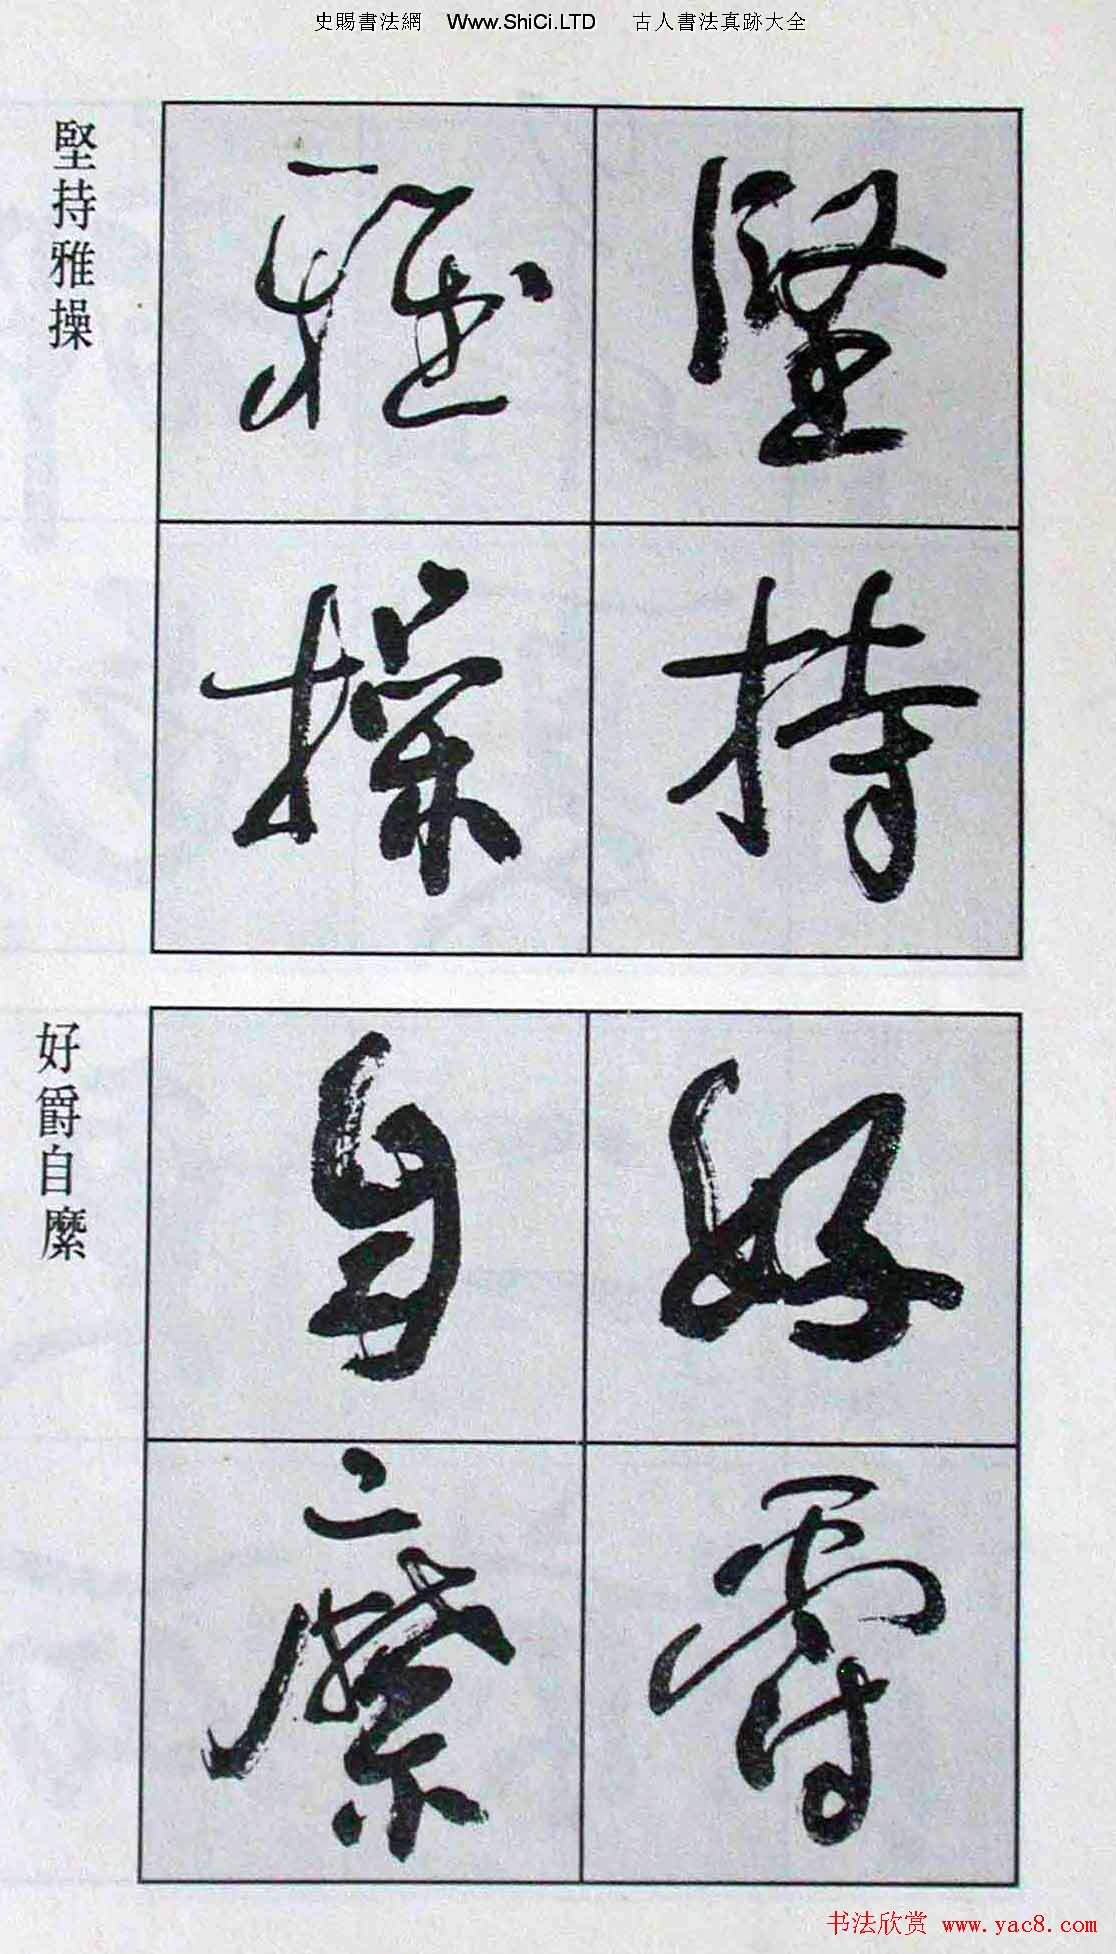 史賜書法網 Www.ShiCi.LTD 古人書法真跡大全
堅持
雅操
堅持雅操
好爵
自縻
好爵自縻
书法欣赏 www.yac8.com